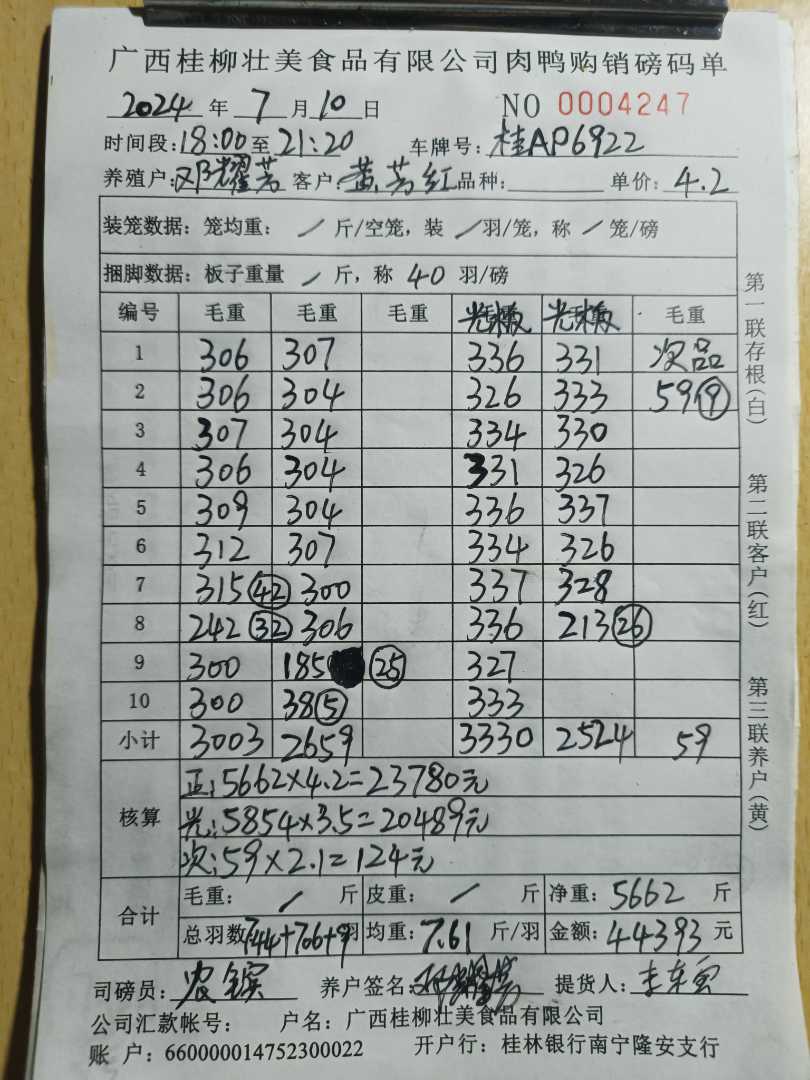 广西桂柳壮美食品有限公司肉鸭购销磅码单
2024 年 7 月 10 日 NO 0004247
时间段: 18:00 至 21:20 车牌号: 桂AP6922
养殖户: 邓耀芳 客户: 黄芳红 品种: 单价: 4.2
装笼数据: 笼均重: / 斤/空笼, 装 / 羽/笼, 称 / 笼/磅
捆脚数据: 板子重量 / 斤, 称 40 羽/磅
编号 毛重 毛重 毛重 毛重
1 306 307 336 331 次品
2 306 304 326 333 59 ⑨
3 307 304 334 330
4 306 304 331 326
5 309 304 336 337
6 312 307 334 326
7 315 ㊷ 300 337 328
8 242 ㉜ 306 336 213 ㉖
9 300 185 ㉕ 327
10 300 38 ⑤ 333
小计 3003 2659 3330 2524 59
核算
正: 5662×4.2=23780元
光: 5854×3.5=20489元
次: 59×2.1=124元
合计
毛重: / 斤 皮重: / 斤 净重: 5662 斤
总羽数 744+706+9 羽 均重: 7.61 斤/羽 金额: 44393 元
司磅员: 养户签名: 提货人:
公司汇款帐号: 户名: 广西桂柳壮美食品有限公司
账 户: 660000014752300022 开户行: 桂林银行南宁隆安支行
第一联存根(白)
第二联客户(红)
第三联养户(黄)